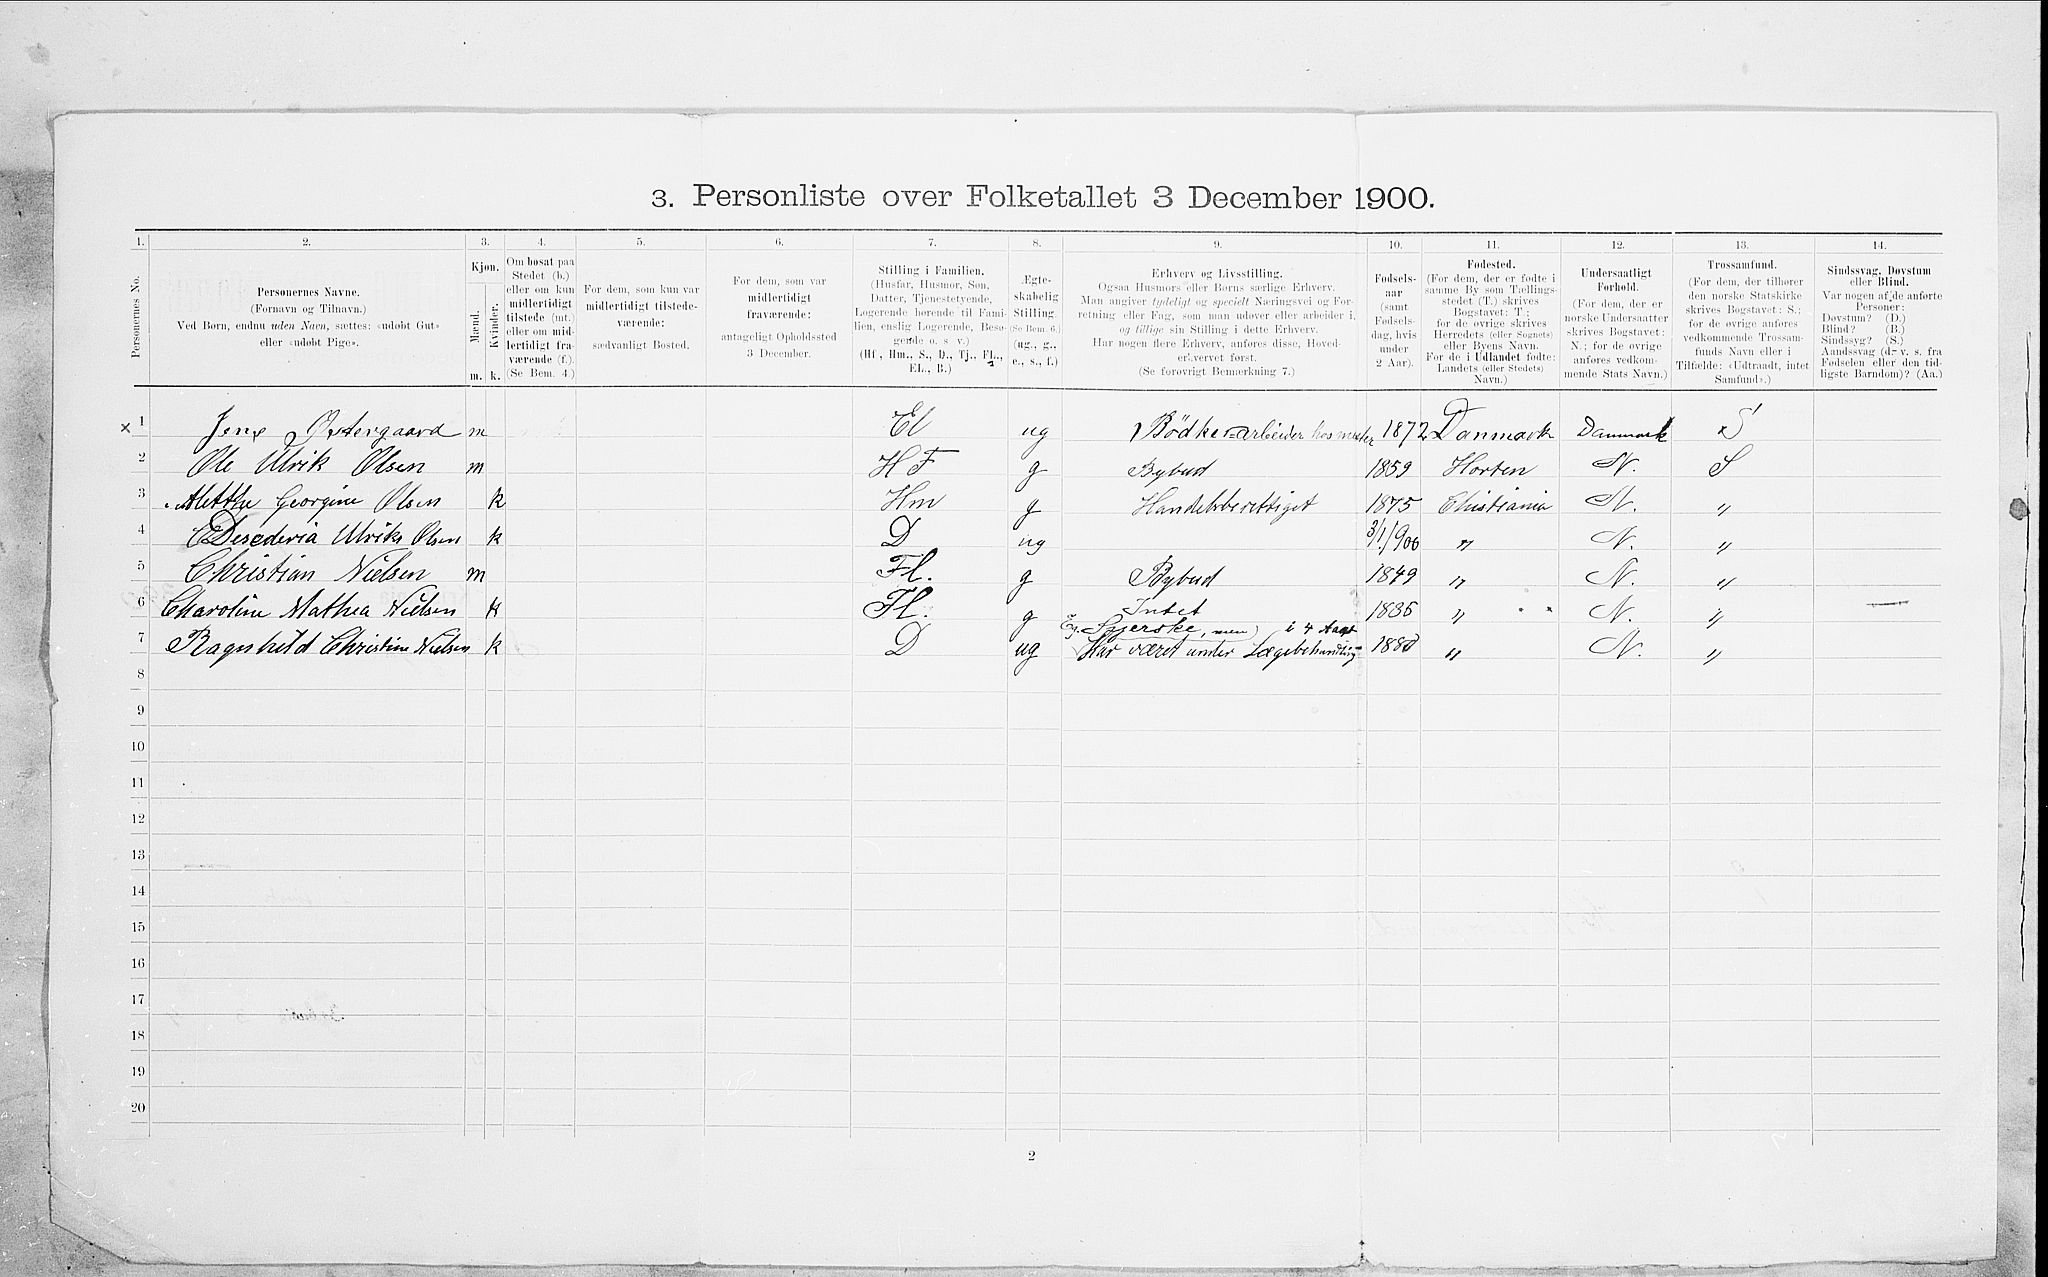 3. Personliste over Folketallet 3 December 1900.
1. 2. 3. 4. 5. 6. 7. 8. 9. 10. 11. 12. 13. 14.
Personernes No.
Personernes Navne.
(Fornavn og Tilnavn.)
Ved Børn, endnu uden Navn, sættes: «udøbt Gut»
eller «udøbt Pige».
Kjøn.
Mænd.
Kvinder.
m. k.
Om bosat paa
Stedet (b.)
eller om kun
midlertidigt
tilstede (mt.)
eller om mid-
lertidigt fra-
værende (f.).
(Se Bem. 4.)
For dem, som kun var
midlertidigt tilstede-
værende:
sædvanligt Bosted.
For dem, som var
midlertidigt
fraværende:
antageligt Opholdssted
3 December.
Stilling i Familien.
(Husfar, Husmor, Søn,
Datter, Tjenestetyende,
Logerende hørende til Fami-
lien, enslig Logerende, Besø-
gende o. s. v.)
(Hf., Hm., S., D., Tj., FL.,
EL., B.)
Ægte-
skabelig
Stilling.
(Se Bem. 6.)
(ug., g.,
e., s., f.)
Erhverv og Livsstilling.
Ogsaa Husmors eller Børns særlige Erhverv.
Man angiver tydeligt og specielt Næringsvei og For-
retning eller Fag, som man udøver eller arbeider i,
og tillige sin Stilling i dette Erhverv.
Har nogen flere Erhverv, anføres disse, Hoved-
erhvervet først.
(Se forøvrigt Bemærkning 7.)
Fødsels-
aar
(samt
Fødsels-
dag, hvis
under
2 Aar).
Fødested.
(For dem, der er fødte i
samme By som Tællings-
stedet (T.) skrives
Bogstavet: T.;
for de øvrige skrives
Herredets (eller Sognets)
eller Byens Navn.
For de i Udlandet fødte:
Landets (eller Stedets)
Navn.)
Undersaatligt
Forhold.
(For dem, der er
norske Undersaatter
skrives Bogstavet:
N.; for de øvrige
anføres vedkom-
mende Stats Navn.)
Trossamfund.
(For dem, der tilhører
den norske Statskirke
skrives Bogstavet: S.;
for de øvrige anføres
vedkommende Trossam-
funds Navn eller i
Tilfælde: «Udtraadt, intet
Samfund».)
Sindssvag, Døvstum
eller Blind.
Var nogen af de anførte
Personer:
Døvstum? (D.)
Blind? (B.)
Sindssyg? (S.)
Aandssvag (d. v. s. fra
Fødselen eller den tid-
ligste Barndom)? (Aa.)
x 1 Jens Østergaard m El ug Bödker=arbeider hos mester 1872 Danmark Danmark S
2 Ole Ulrik Olsen m HF g Bybud 1859 Horten N. S
3 Metthe Georgine Olsen k Hm g Handelsberettiget 1875 Christiania N. "
4 Desederia Ulrikk Olsen k D ug 3/1/900 " N. "
5 Christian Nielsen m Fl. g Bybud 1849 " N. "
6 Charoline Mathea Nielsen k Fl. g Intet 1836 " N. " —
7 Ragnhild Christine Nielsen k D ug Eg. Syerske, men i 4 Aar
Har været under Lægebehandling 1880 " N. "
8
9
10
11
12
13
14
15
16
17
18
19
20
2